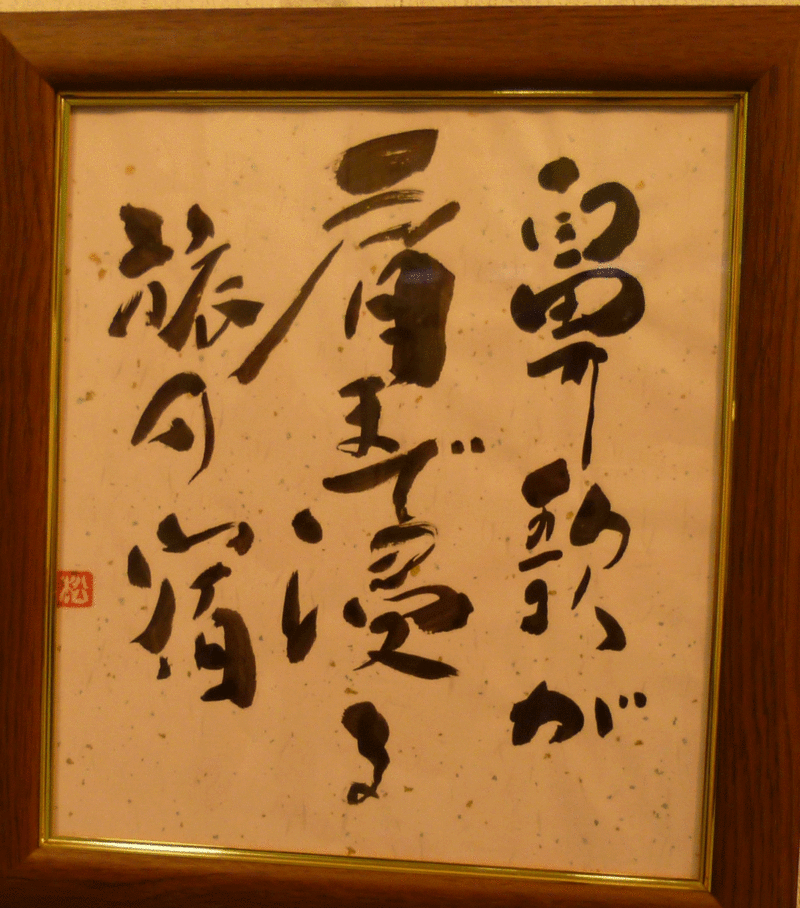 鼻歌が
肩まで浸る
旅の宿
松